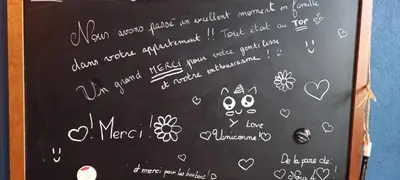 Nous avons passé un excellent moment en famille
dans votre appartement !! Tout était au TOP
Un grand MERCI pour votre gentillesse
et votre enthousiasme !
! Merci !
I Love
Unicorne !
et merci pour les bonbons !
De la part de :
Nous 4